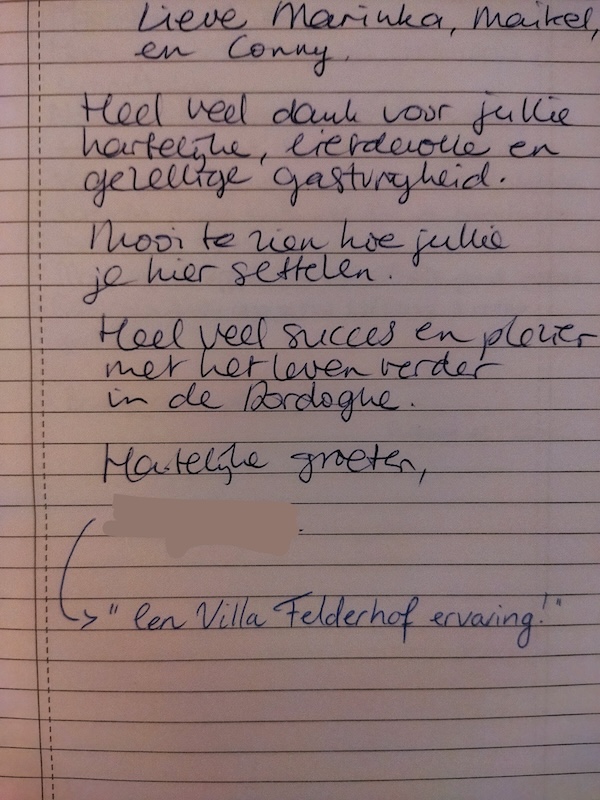 Lieve Marinka, Maikel,
en Conny,
Heel veel dank voor jullie
hartelijke, liefdevolle en
gezellige gastvrijheid.
Mooi te zien hoe jullie
je hier settelen.
Heel veel succes en plezier
met het leven verder
in de Dordogne.
Hartelijke groeten,
→ "Een Villa Felderhof ervaring!"